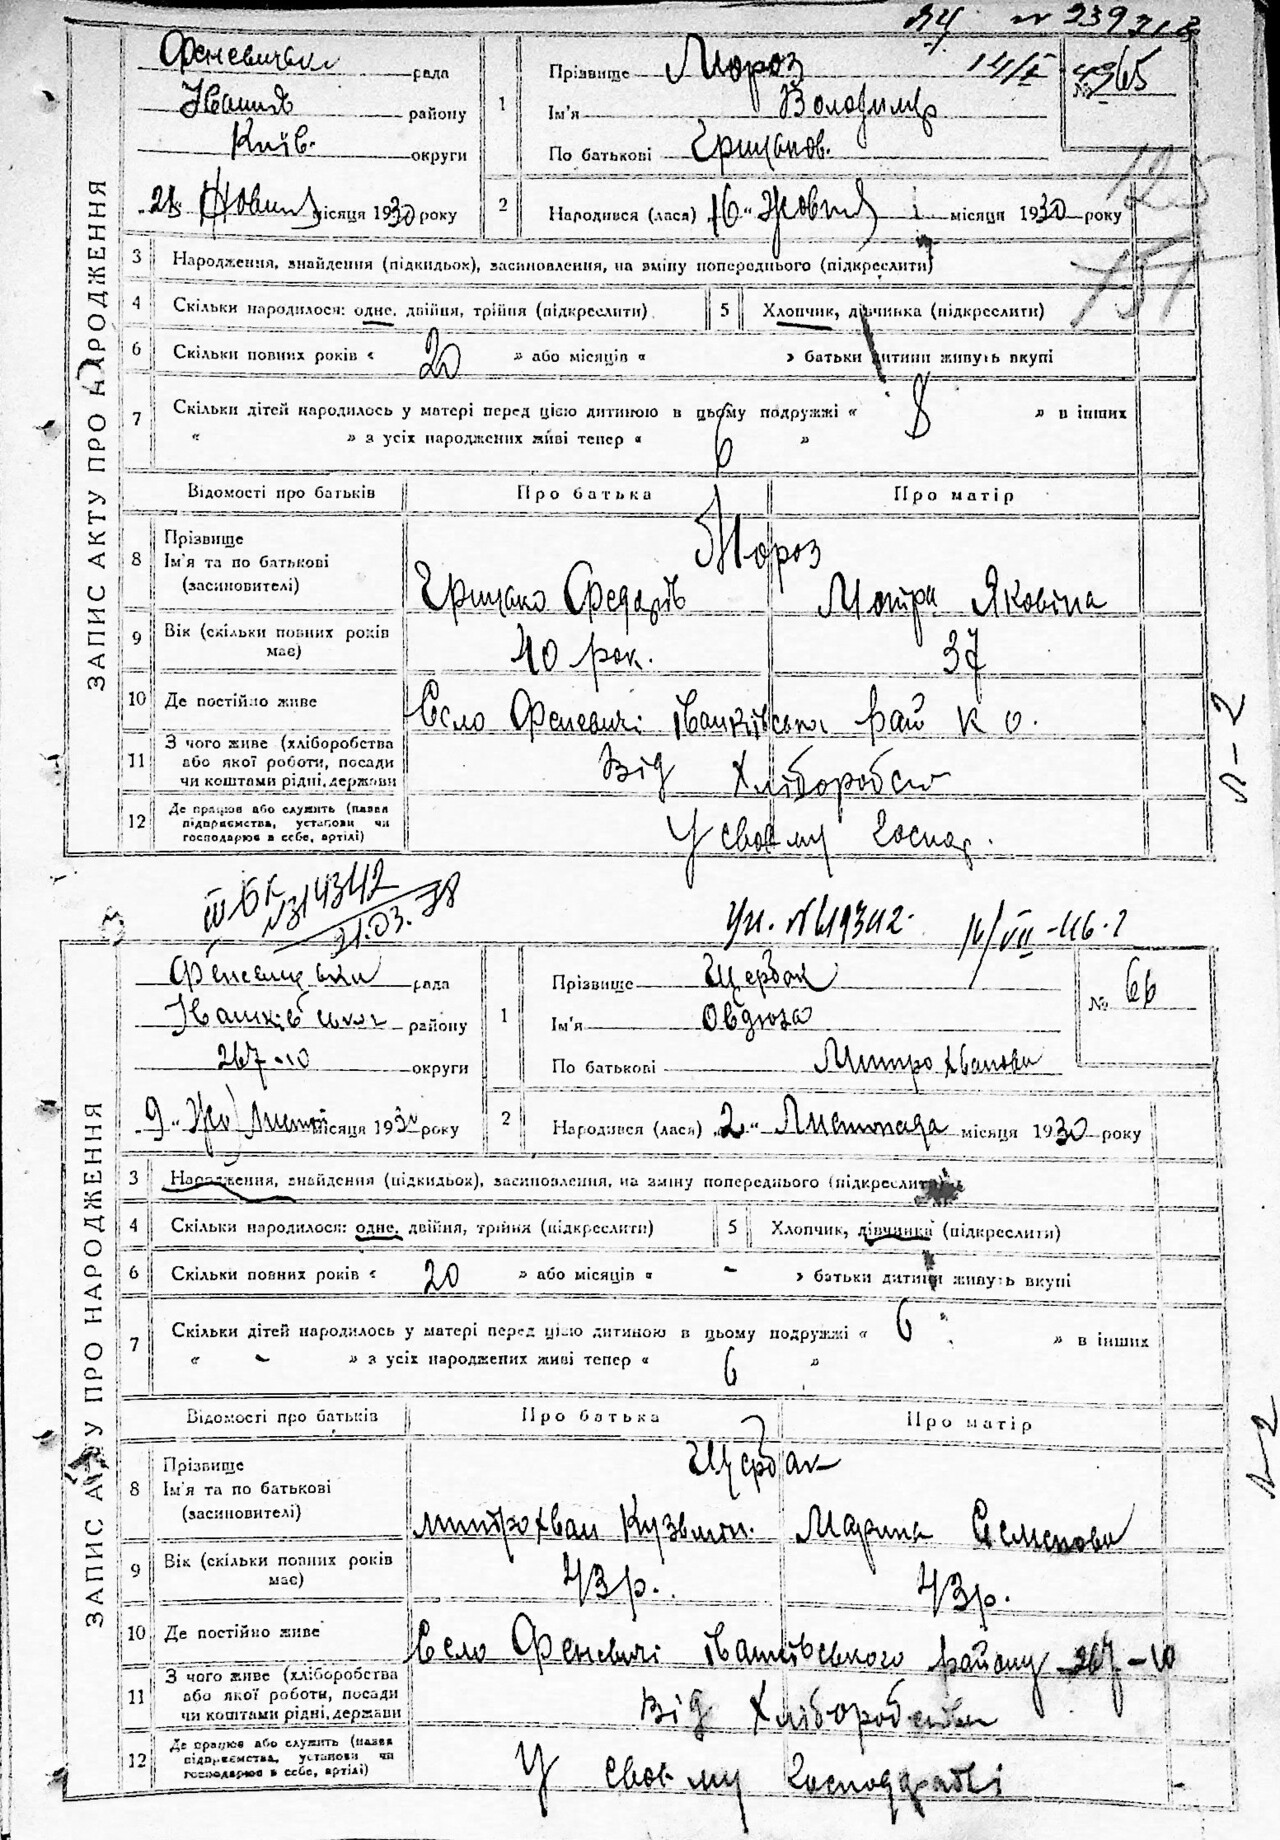 № 239718
ЗАПИС АКТУ ПРО НАРОДЖЕННЯ
Феневицька рада
району
Київ. округи
21 місяця 1930 року
1 Прізвище Мороз
Ім'я Володимир
По батькові Грицьков.
№ 65
2 Народився (лася) 16 " Жовтня місяця 1930 року
3 Народження, знайдення (підкидьок), засиновлення, на зміну попереднього (підкреслити)
4 Скільки народилося: одне, двійня, трійня (підкреслити)
5 Хлопчик, дівчинка (підкреслити)
6 Скільки повних років « 20 » або місяців « » батьки дитини живуть вкупі
7 Скільки дітей народилось у матері перед цією дитиною в цьому подружжі « 8 » в інших
« » з усіх народжених живі тепер « 6 »
Відомості про батьків Про батька Про матір
8 Прізвище
Ім'я та по батькові
(засиновителі)
Мороз
Грицько Федорів Мотря Яковівна
9 Вік (скільки повних років має) 40 рок. 37
10 Де постійно живе Село Феневичі Іванківськ рай К о.
11 З чого живе (хліборобства або якої роботи, посади чи коштами рідні, держави Від хліборобст
12 Де працює або служить (назва підприємства, установи чи господарює в себе, артілі) У своєму госпо.
№ 314342
21.03.78
№ 619342. 16/VII-46 г
ЗАПИС АКТУ ПРО НАРОДЖЕННЯ
рада
Іванківськог району
267-10 округи
9 " місяця 1930 року
1 Прізвище Щербак
Ім'я Овдюха
По батькові Митрохванови
№ 66
2 Народився (лася) 2 " Листопада місяця 1930 року
3 Народження, знайдення (підкидьок), засиновлення, на зміну попереднього (підкреслити)
4 Скільки народилося: одне, двійня, трійня (підкреслити)
5 Хлопчик, дівчинка (підкреслити)
6 Скільки повних років « 20 » або місяців « - » батьки дитини живуть вкупі
7 Скільки дітей народилось у матері перед цією дитиною в цьому подружжі « 6 » в інших
« - » з усіх народжених живі тепер « 6 »
Відомості про батьків Про батька Про матір
8 Прізвище
Ім'я та по батькові
(засиновителі)
Щербак
Митрохван Кузьмин. Марина Семенова
9 Вік (скільки повних років має) 43 р. 43 р.
10 Де постійно живе Село Феневичі Іванківського району 267-10
11 З чого живе (хліборобства або якої роботи, посади чи коштами рідні, держави Від хліборобства
12 Де працює або служить (назва підприємства, установи чи господарює в себе, артілі) У своєму